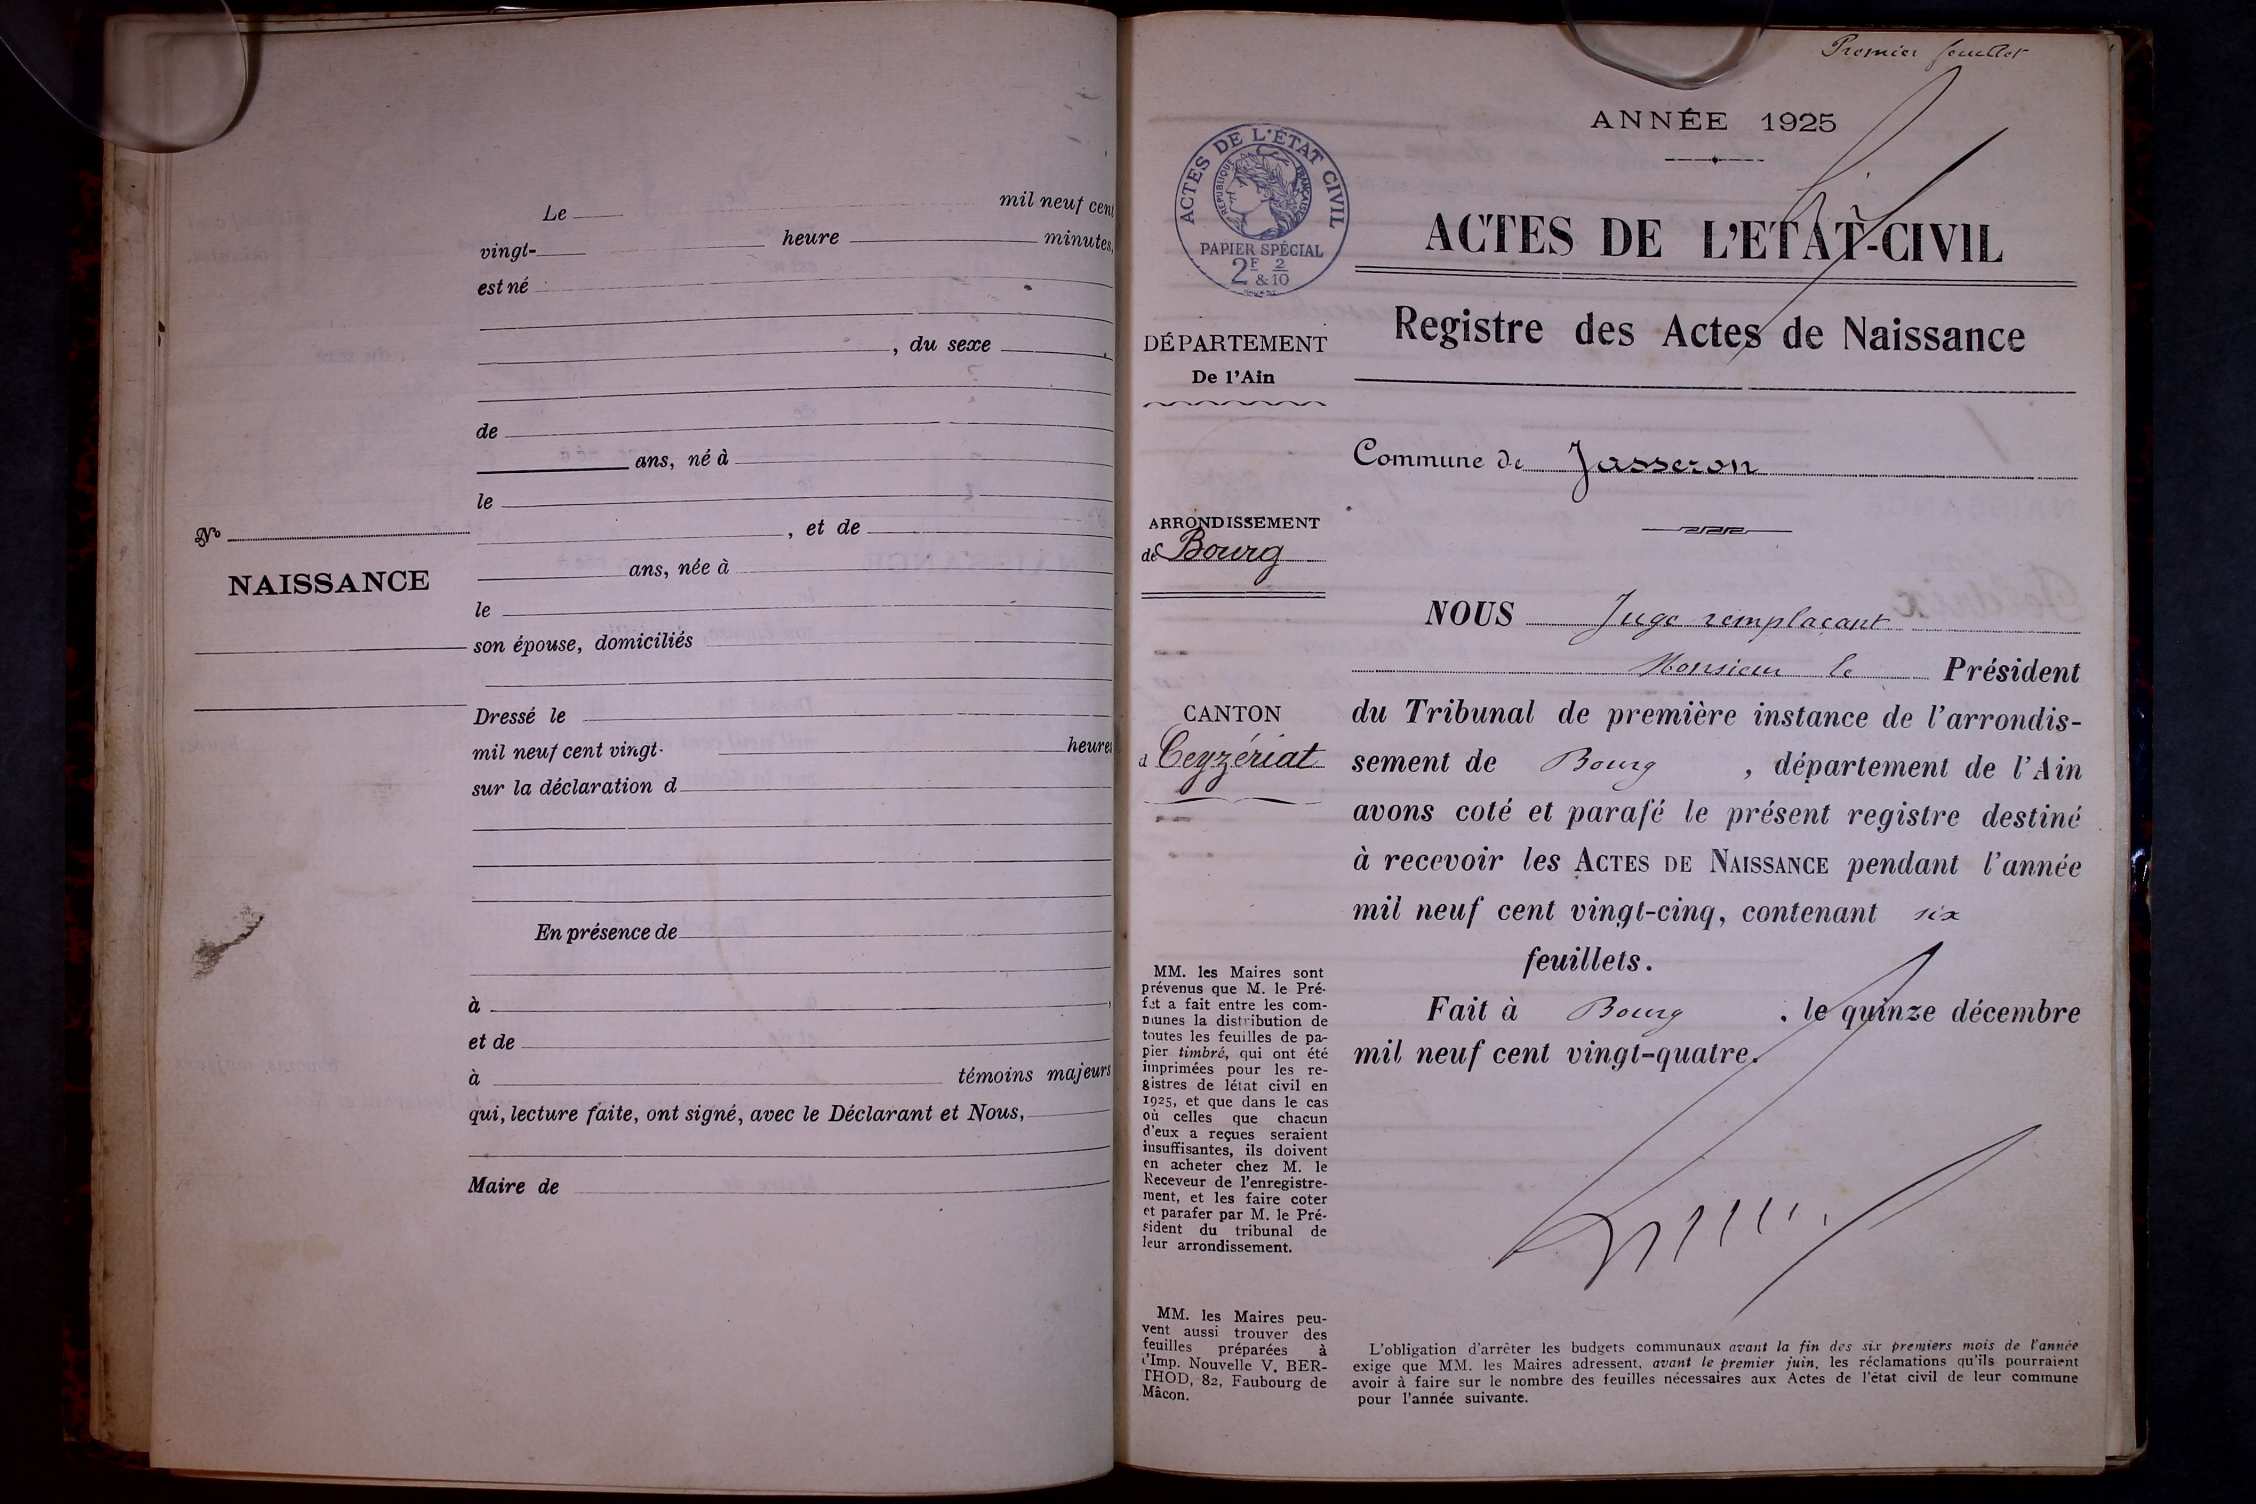 Le mil neuf cent
vingt- heure minutes,
est né
, du sexe
de
ans, né à
le
, et de
ans, née à
le
son épouse, domiciliés
No
NAISSANCE
Dressé le
mil neuf cent vingt- heures
sur la déclaration d
En présence de
à
et de
à témoins majeurs
qui, lecture faite, ont signé, avec le Déclarant et Nous,
Maire de
Premier feuillet
ANNÉE 1925
ACTES DE L'ÉTAT CIVIL
RÉPUBLIQUE FRANÇAISE
PAPIER SPÉCIAL
2F & 2/10
ACTES DE L'ETAT-CIVIL
Registre des Actes de Naissance
DÉPARTEMENT
De l'Ain
Commune de Jasseron
ARRONDISSEMENT
de Bourg
CANTON
d Ceyzériat
NOUS Juge remplaçant
Monsieur le Président
du Tribunal de première instance de l'arrondis-
sement de Bourg , département de l'Ain
avons coté et parafé le présent registre destiné
à recevoir les ACTES DE NAISSANCE pendant l'année
mil neuf cent vingt-cinq, contenant six
feuillets.
Fait à Bourg , le quinze décembre
mil neuf cent vingt-quatre.
MM. les Maires sont
prévenus que M. le Pré-
fet a fait entre les com-
munes la distribution de
toutes les feuilles de pa-
pier timbré, qui ont été
imprimées pour les re-
gistres de létat civil en
1925, et que dans le cas
où celles que chacun
d'eux a reçues seraient
insuffisantes, ils doivent
en acheter chez M. le
Receveur de l'enregistre-
ment, et les faire coter
et parafer par M. le Pré-
sident du tribunal de
leur arrondissement.
MM. les Maires peu-
vent aussi trouver des
feuilles préparées à
l'Imp. Nouvelle V. BER-
THOD, 82, Faubourg de
Mâcon.
L'obligation d'arrêter les budgets communaux avant la fin des six premiers mois de l'année
exige que MM. les Maires adressent, avant le premier juin, les réclamations qu'ils pourraient
avoir à faire sur le nombre des feuilles nécessaires aux Actes de l'état civil de leur commune
pour l'année suivante.